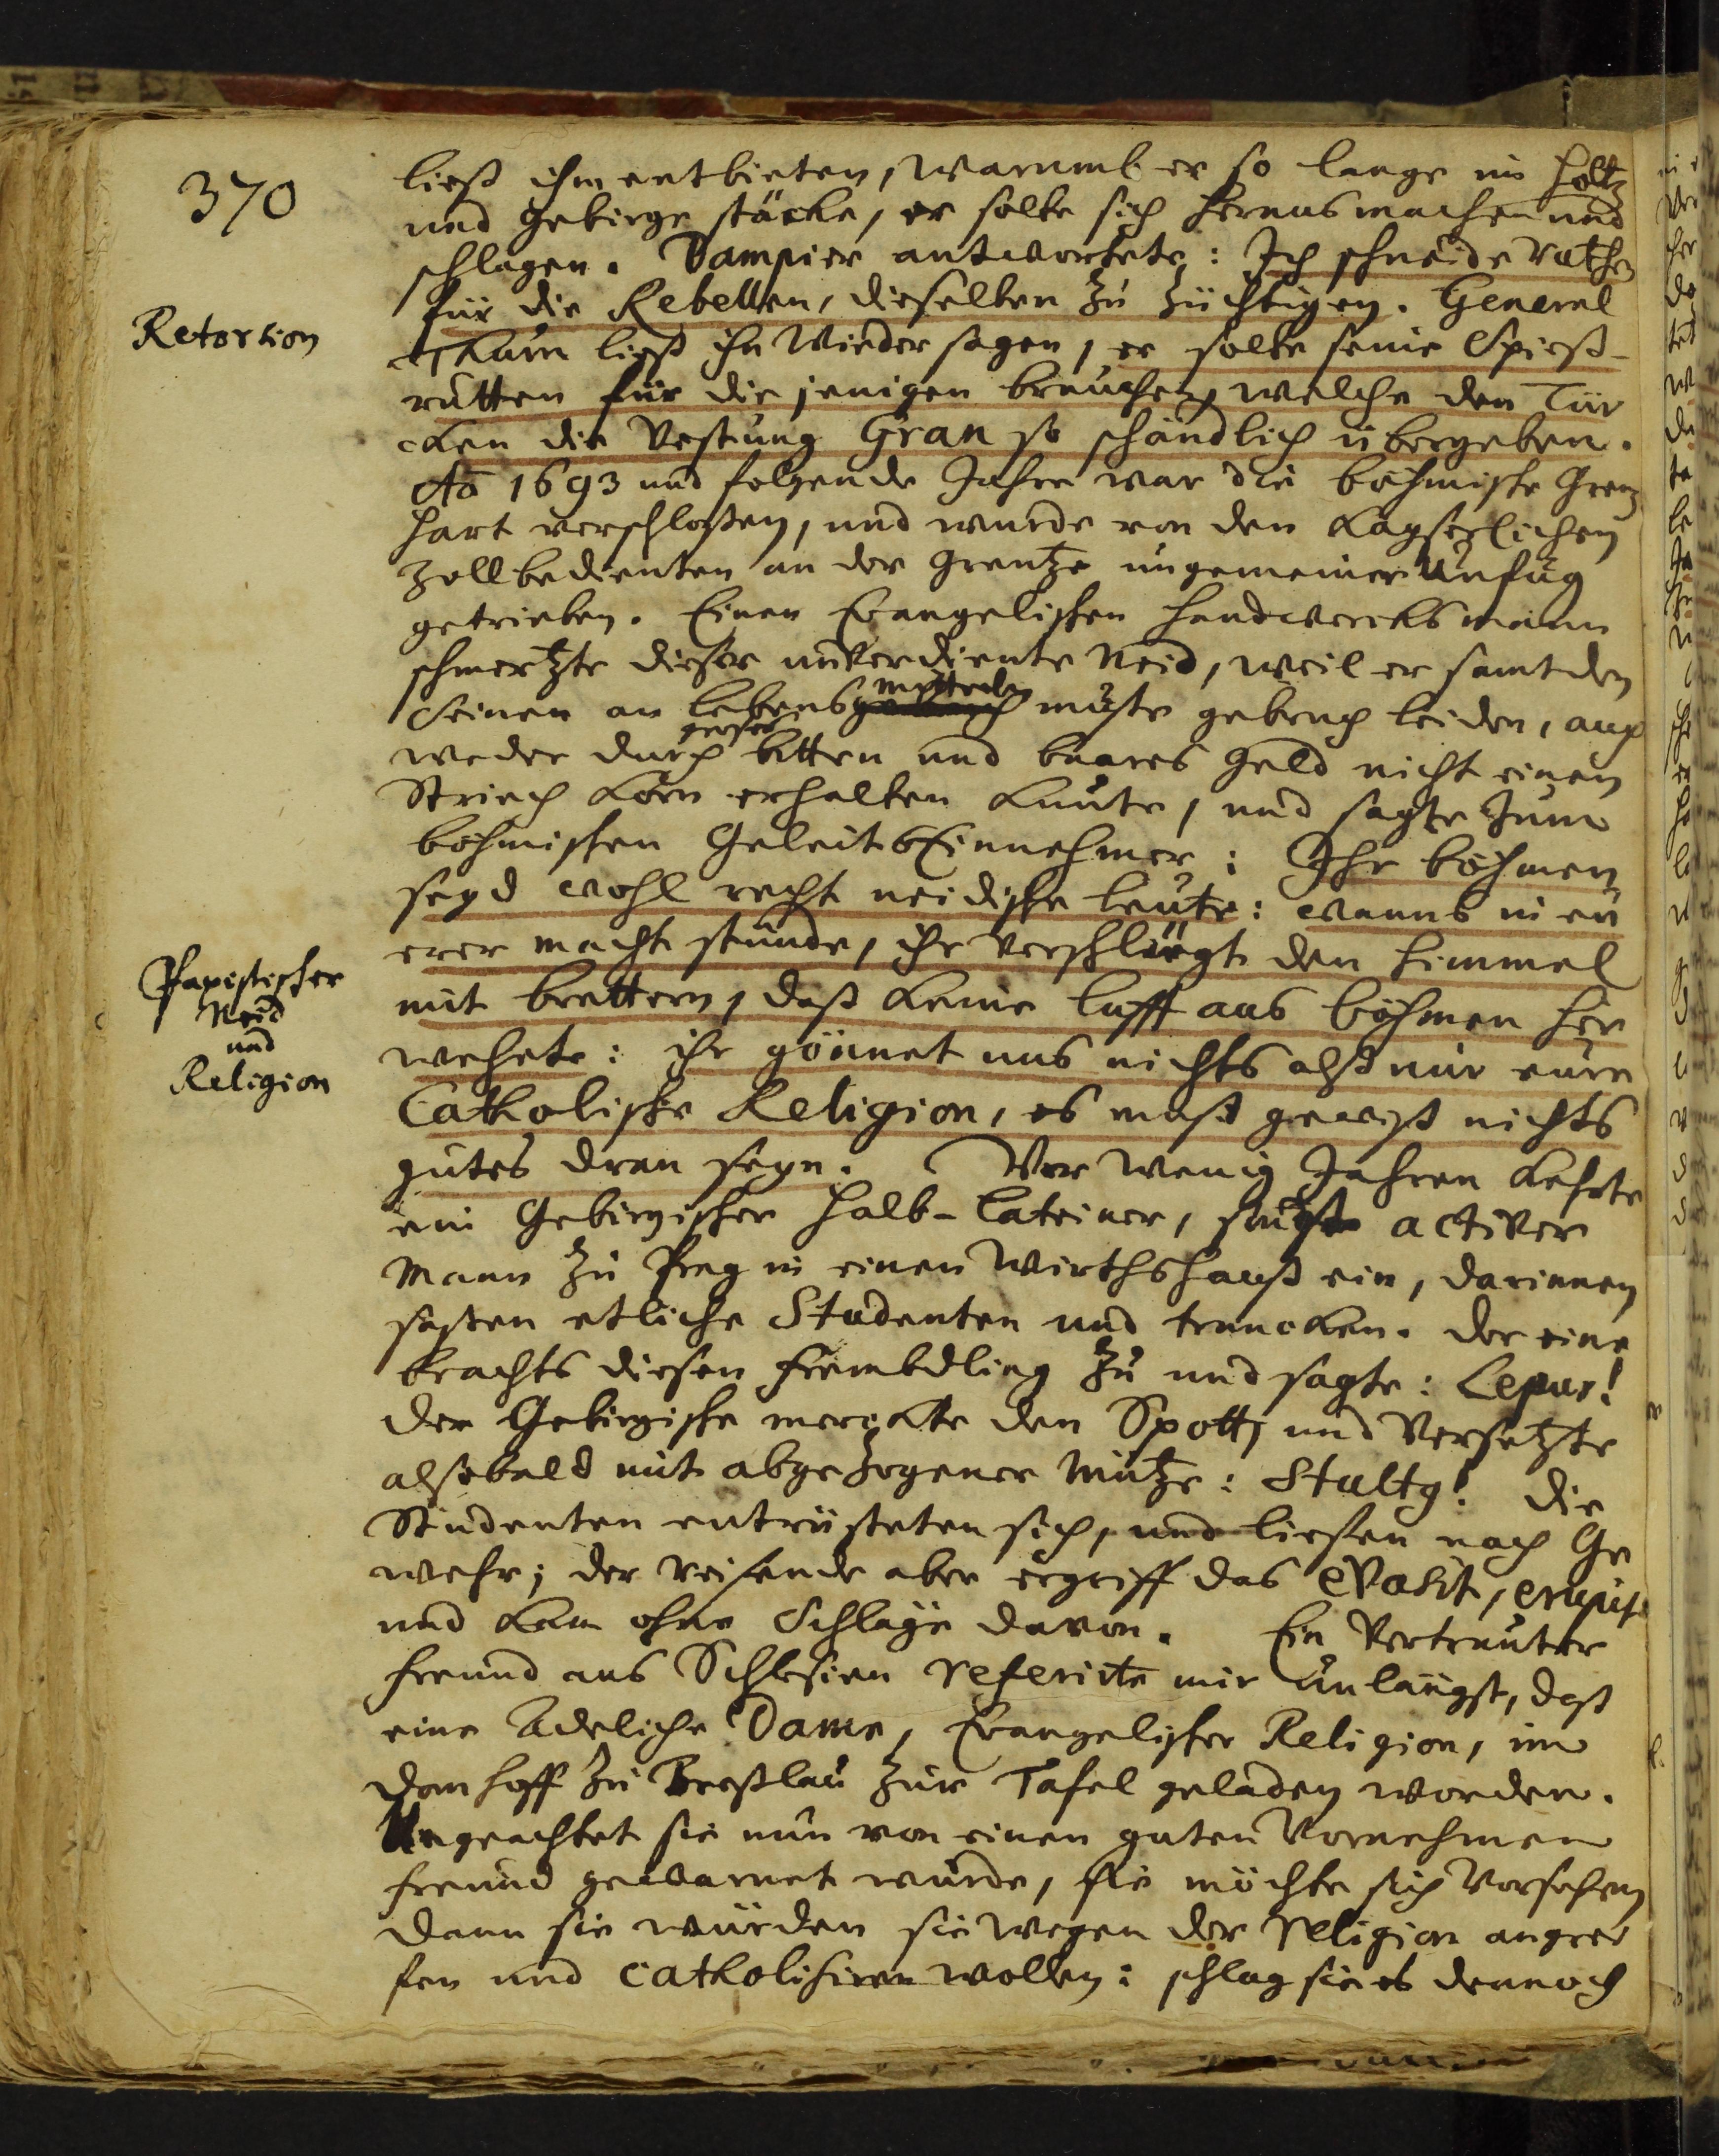 370
ließ ihm entbieten, warumb er so lange im Holtz
und Gebirge stäcke, er solte sich heraus machen und
schlagen. Dampier antwortete: Ich schneide ruthen
für die Rebellen, dieselben zu züchtigen. General
Retortion
Thurn ließ ihn wieder sagen, er solte seine Spieß-
rutten für die jenigen brauchen, welche den Tür
cken die Vestung Gran so schändlich übergeben.
Ao 1693 und folgende Jahre war die böhmische Grenz
hart verschloßen, und wurde von den Kayserlichen
Zollbedienten an der Grentze ungemeiner Unfug
getrieben. Einen Evangelischen Handwercksmann
schmertzte dieser unverdiente Neid, weil er samt den
Seinen an Lebensmitteln muste gebruch leiden, auch
weder durch großes bitten und baares Geld nicht einen
Striech Korn erhalten kunte, und sagte zum
böhmischen Geleits Einnehmer: Ihr böhmen
seyd wohl recht neidische leute: wanns in eu
erer macht stünde, ihr verschlüegt den Himmel
Papistischer
Neid
und
Religion
mit brettern, daß keine lufft aus böhmen her
wehete: ihr gönnet uns nichts alß nur eure
Catholische Religion, es muß gewiß nichts
gutes dran seyn. Vor wenig Jahren kehrte
ein Gebirgischer Halb-Lateiner, sonst activer
Mann zu Prag in einen Wirthshauß ein, darinnen
saßen etliche Studenten und truncken. Der eine
brachts diesen frembdling zu und sagte: Lepus!
Der Gebirgische merckte den Spott, und versetzte
alsobald mit abgezogener Mütze: Stultg! Die
Studenten entrüsteten sich, und liefen nach Ge
wehr; der reisende aber ergriff das evasit, erupit
und kam ohne Schläge davon. Ein Vertrauter
freund aus Schlesien referirte mir unlängst, daß
eine Adeliche Dame, Evangelischer Religion, im
Domhoff zu Breßlau zur Tafel geladen worden.
Ungeachtet sie nun von einen guten Vornehmen
freund gewarnet wurde, sie möchte sich vorsehen
dann sie würden sie wegen der religion angrei
fen und catholisiren wollen: schlag sie es dennoch